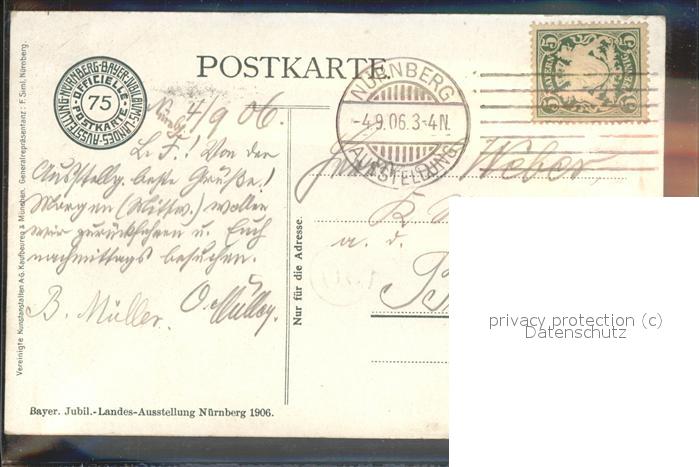 NÜRNBERG-BAYER-JUBILÄUMS-LANDES-AUSSTELLUNG
OFFICIELLE
75
POSTKARTE
POSTKARTE
NÜRNBERG
-4.9.06.3-4N.
AUSSTELLUNG
5 5
BAYERN
5 5
N. 4/9 06.
L. F.! Von der
Ausstellg. beste Grüße!
Morgen (Mittw.) wollen
wir zurückfahren u. Euch
nachmittags besuchen.
B. Müller. O. Müller.
Weber,
K.
a. d.
Nur für die Adresse.
Vereinigte Kunstanstalten A.G. Kaufbeuren & München. Generalrepräsentanz: F. Siml, Nürnberg.
Bayer. Jubil.-Landes-Ausstellung Nürnberg 1906.
privacy protection (c)
Datenschutz